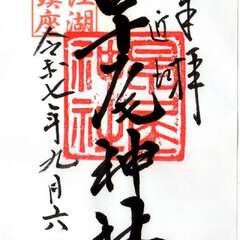 奉拝
近江
早尾神社
早尾
神社
江湖
鎮座
令和七年九月六